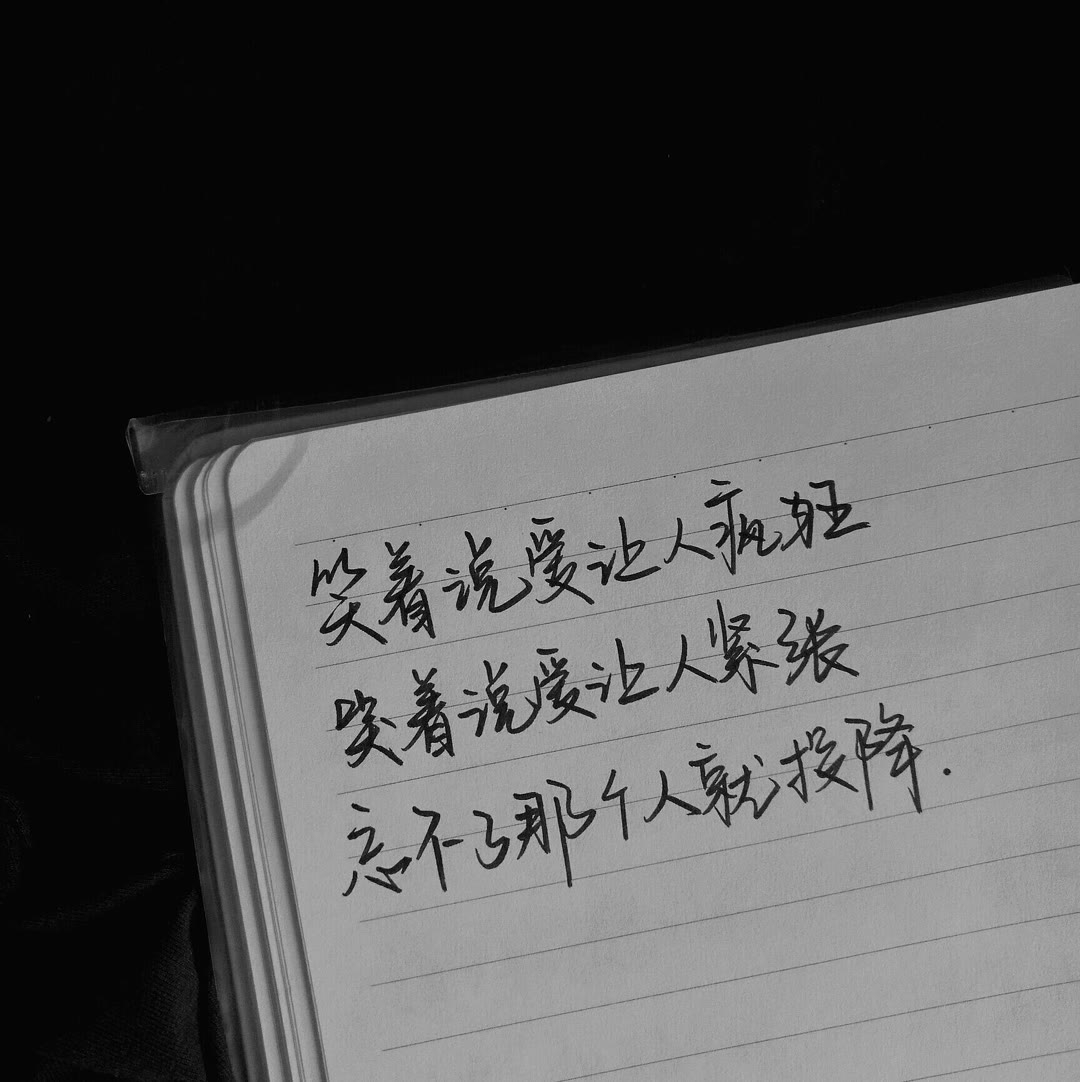 笑着说爱让人疯狂
哭着说爱让人紧张
忘不了那个人就投降.